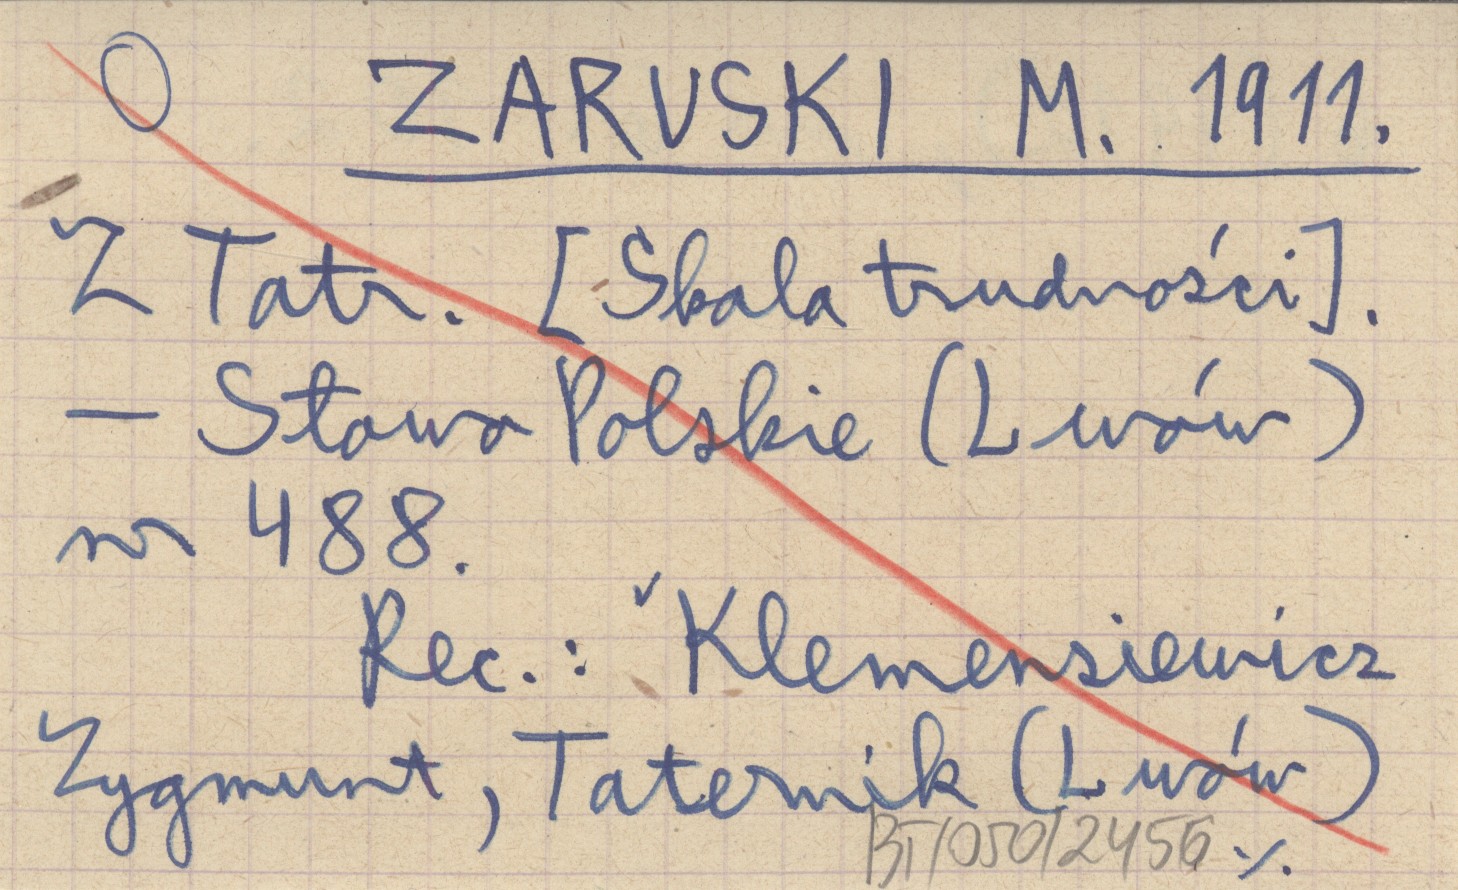 O ZARUSKI M. 1911.
Z Tatr. [Skala trudności].
— Słowo Polskie (Lwów)
nr 488.
Rec.: ✓Klemensiewicz
Zygmunt, Taternik (Lwów)
BT/050/2456 ·/.